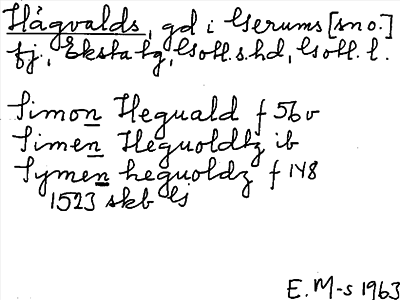 Hågvalds, gd i Gerums [sno.]
fj, Eksta tg, Gotl.s.hd, Gotl. l.
Simon Heguald f 56 v
Simen Heguoldtz ib
Symen heguoldz f 148
1523 skb G
E. M-s 1963